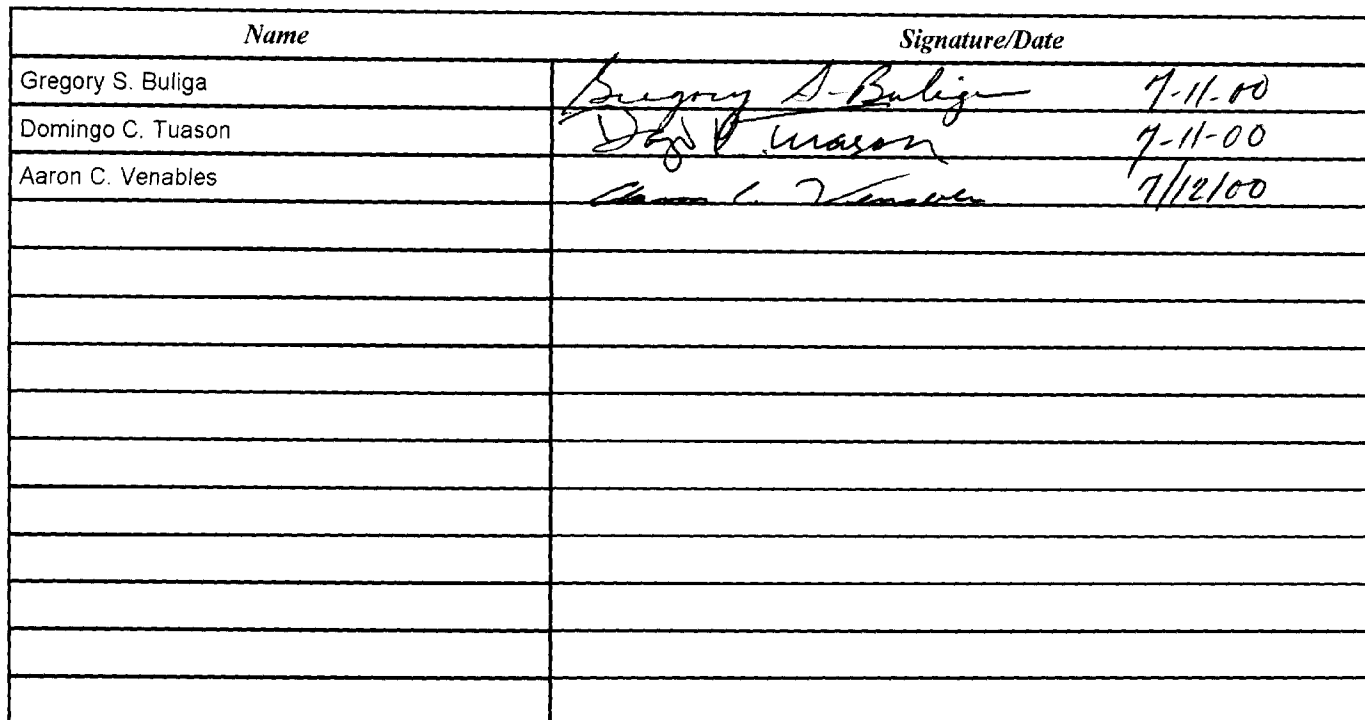 Name Signature/Date
Gregory S. Buliga Gregory S. Buliga 7-11-00
Domingo C. Tuason Tuason 7-11-00
Aaron C. Venables Aaron C. Venables 7/12/00